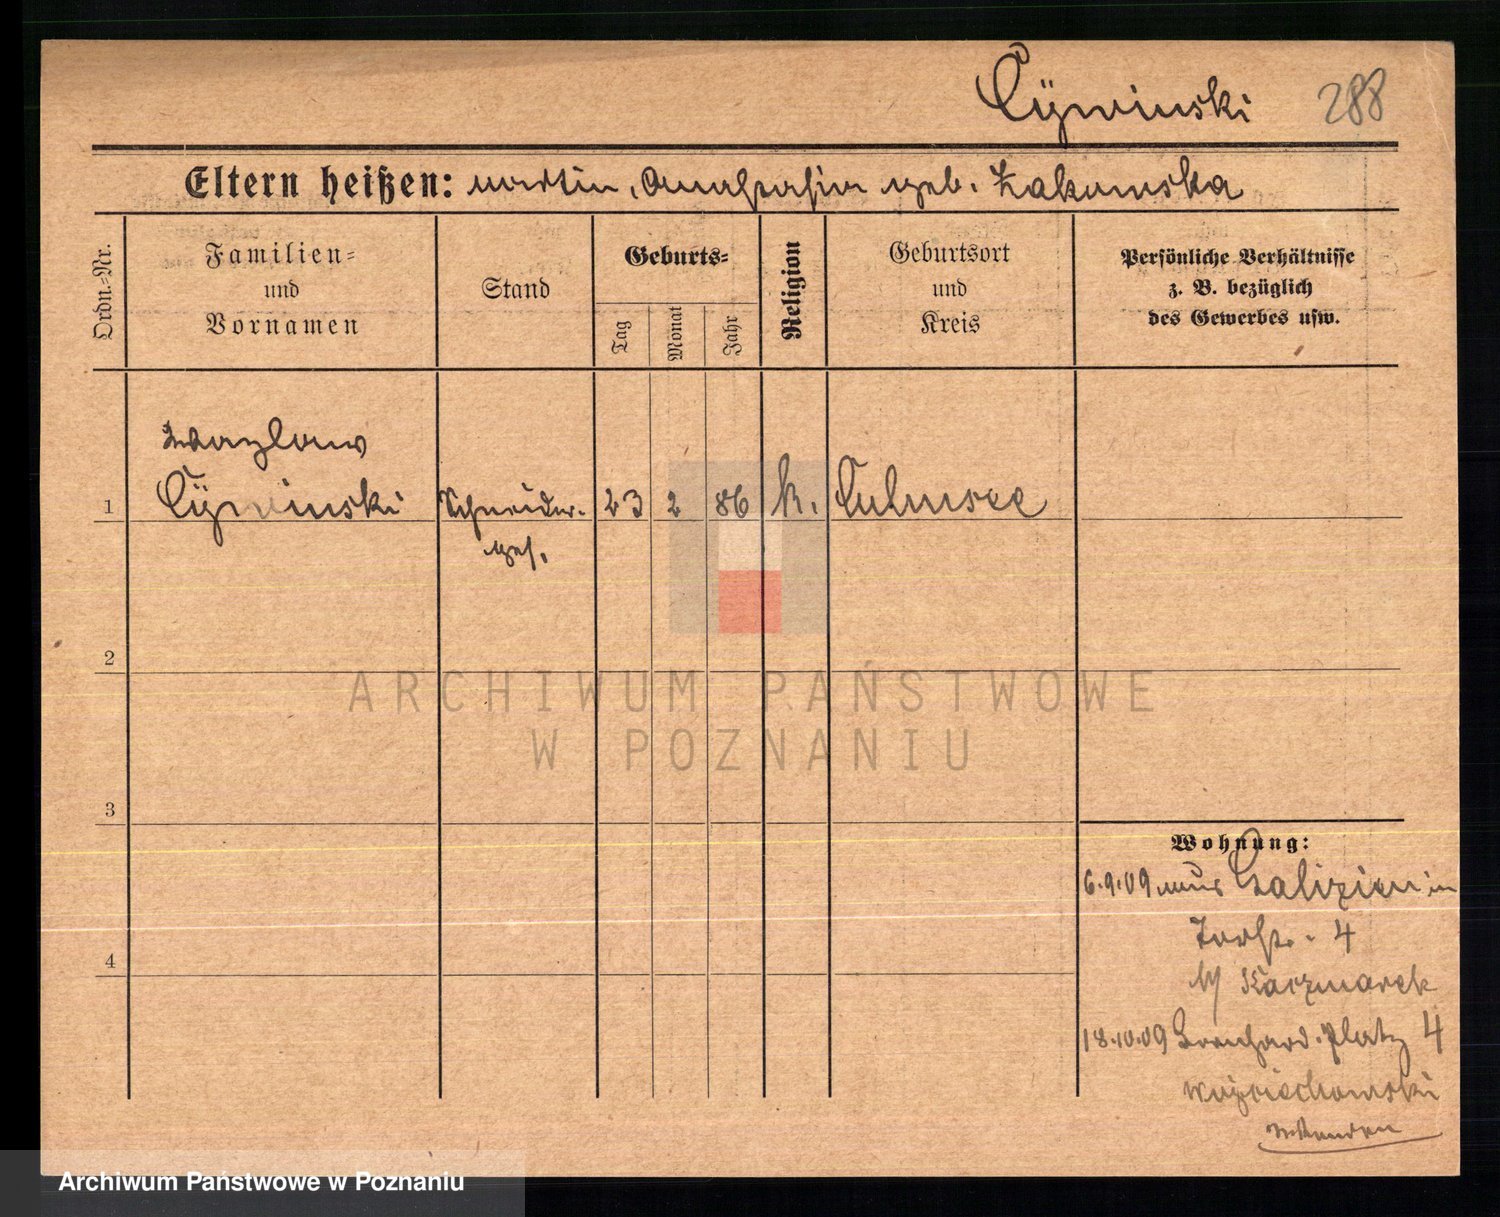 Cÿwinski 288
Eltern heißen: Martin, Anastasia geb. Zakowska
Ordn.-Nr.
Familien-
und
Vornamen
Stand
Geburts-
Tag
Monat
Jahr
Religion
Geburtsort
und
Kreis
Persönliche Verhältnisse
z. B. bezüglich
des Gewerbes usw.
Wazlaw
1 Cÿwinski Schneider- 23 2 86 k. Culmsee
ges.
2
ARCHIWUM PAŃSTWOWE
W POZNANIU
3
Wohnung:
6.9.09 aus Galizien in
4
4
b/ Kaczmarek
18.10.09 Bernhard. Platz 4
Wojciechowski
Archiwum Państwowe w Poznaniu